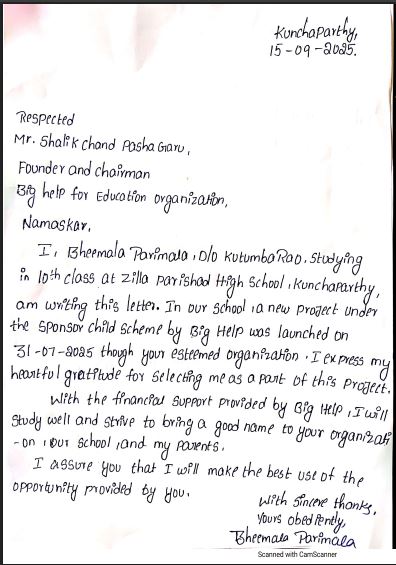 Kunchaparthy,
15-09-2025.
Respected
Mr. Shalik chand Pasha Garu,
Founder and chairman
Big help for Education organization,
Namaskar,
I, Bheemala Parimala, D/o Kutumba Rao, studying
in 10th class at Zilla Parishad High School, Kunchaparthy,
am writing this letter. In our school, a new project under
the sponsor child scheme by Big Help was launched on
31-07-2025 though your esteemed organization. I express my
heartful gratitude for selecting me as a part of this project.
With the financial support provided by Big Help, I will
study well and strive to bring a good name to your organizati
-on, our school, and my parents.
I assure you that I will make the best use of the
opportunity provided by you.
With sincere thanks,
Yours obediently,
Bheemala Parimala
Scanned with CamScanner